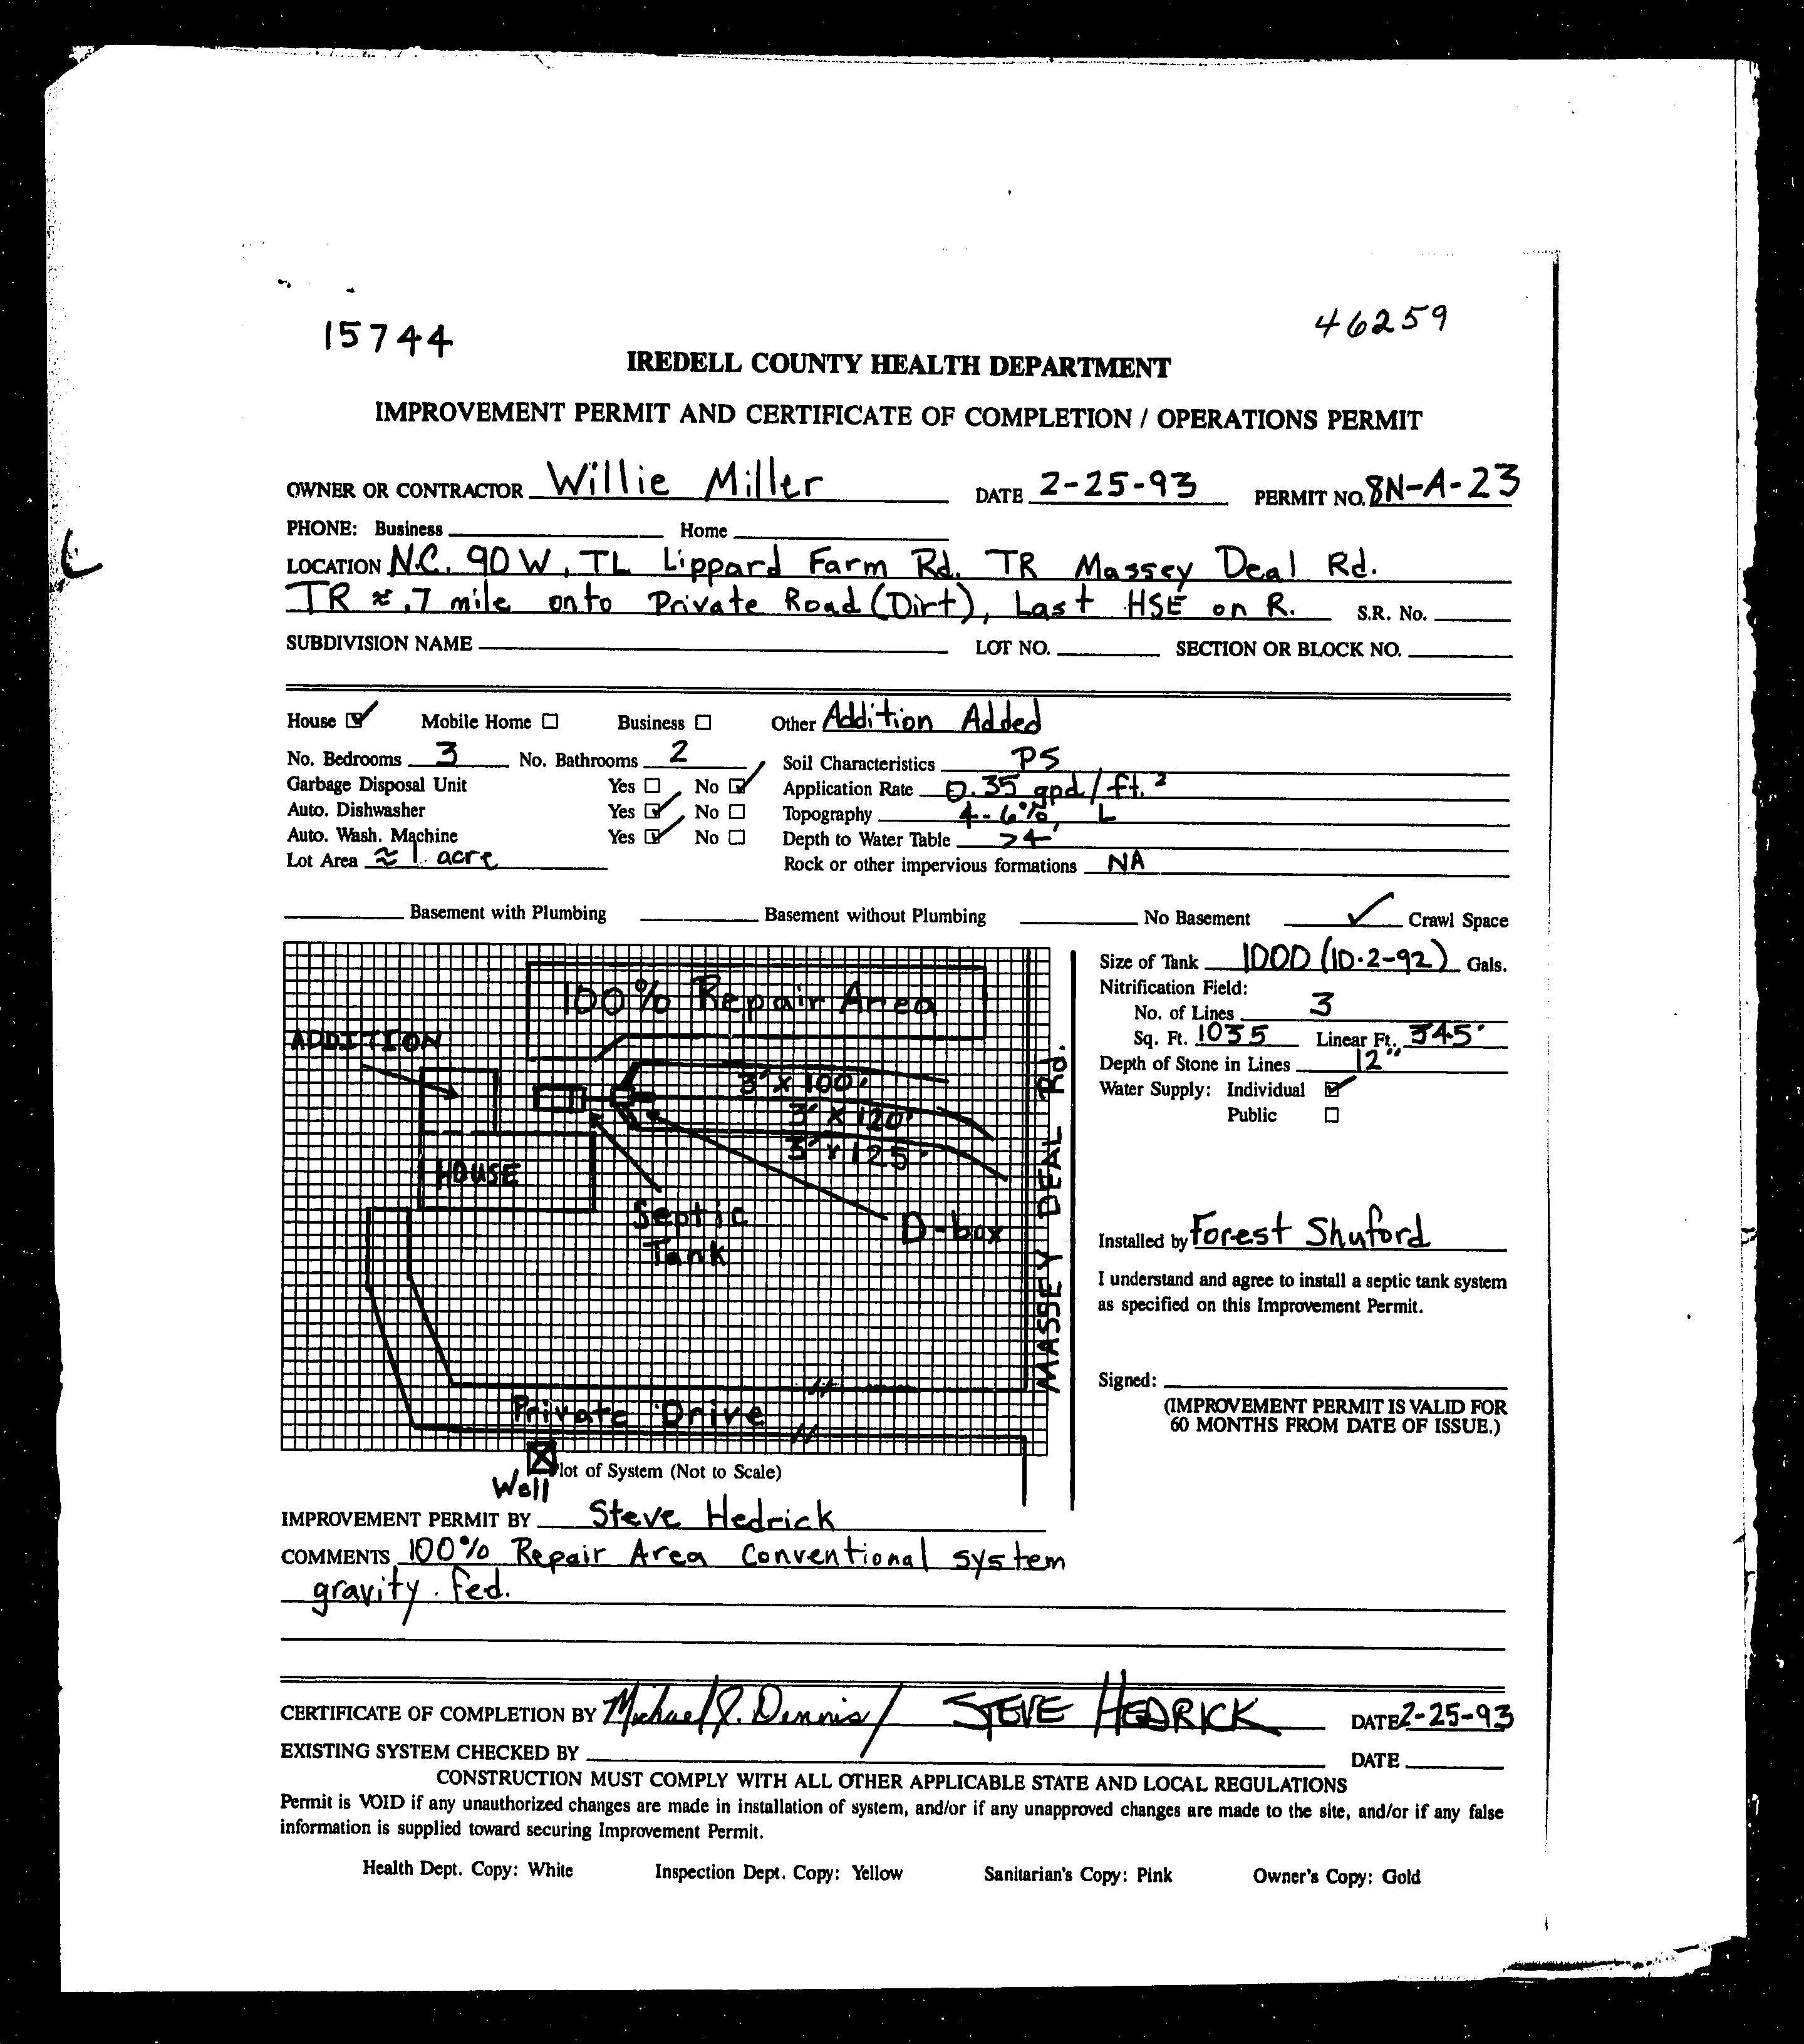 15744
46259
IREDELL COUNTY HEALTH DEPARTMENT
IMPROVEMENT PERMIT AND CERTIFICATE OF COMPLETION / OPERATIONS PERMIT
OWNER OR CONTRACTOR Willie Miller DATE 2-25-93 PERMIT NO. 8N-A-23
PHONE: Business Home
LOCATION N.C. 90 W, TL Lippard Farm Rd. TR Massey Deal Rd.
TR ≈ .7 mile onto Private Road (Dirt), Last HSE on R. S.R. No.
SUBDIVISION NAME LOT NO. SECTION OR BLOCK NO.
House ☑ Mobile Home ☐ Business ☐ Other Addition Added
No. Bedrooms 3 No. Bathrooms 2 Soil Characteristics PS
Garbage Disposal Unit Yes ☐ No ☑ Application Rate 0.35 gpd/ft.²
Auto. Dishwasher Yes ☑ No ☐ Topography 4-6%, L
Auto. Wash. Machine Yes ☑ No ☐ Depth to Water Table >4'
Lot Area ≈ 1 acre Rock or other impervious formations NA
Basement with Plumbing Basement without Plumbing No Basement ✓ Crawl Space
100% Repair Area
ADDITION
3' x 100'
3' x 120'
3' x 125'
HOUSE
Septic
Tank
D-box
MASSEY DEAL Rd.
Private Drive
Well
lot of System (Not to Scale)
Size of Tank 1000 (10-2-92) Gals.
Nitrification Field:
No. of Lines 3
Sq. Ft. 1035 Linear Ft. 345'
Depth of Stone in Lines 12"
Water Supply: Individual ☑
Public ☐
Installed by Forest Shuford
I understand and agree to install a septic tank system
as specified on this Improvement Permit.
Signed:
(IMPROVEMENT PERMIT IS VALID FOR
60 MONTHS FROM DATE OF ISSUE.)
IMPROVEMENT PERMIT BY Steve Hedrick
COMMENTS 100% Repair Area Conventional system
gravity fed.
CERTIFICATE OF COMPLETION BY Michael R. Dennis / STEVE HEDRICK DATE 2-25-93
EXISTING SYSTEM CHECKED BY DATE
CONSTRUCTION MUST COMPLY WITH ALL OTHER APPLICABLE STATE AND LOCAL REGULATIONS
Permit is VOID if any unauthorized changes are made in installation of system, and/or if any unapproved changes are made to the site, and/or if any false
information is supplied toward securing Improvement Permit.
Health Dept. Copy: White Inspection Dept. Copy: Yellow Sanitarian's Copy: Pink Owner's Copy: Gold